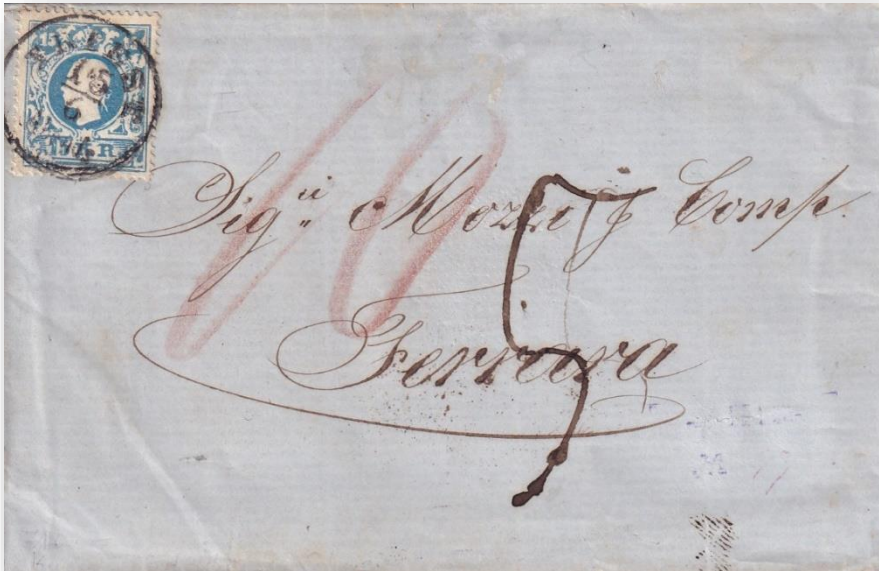 15
TRIEST
15
9
15 KR
10
5
Sig.ii Mozzi & Comp.
Ferrara